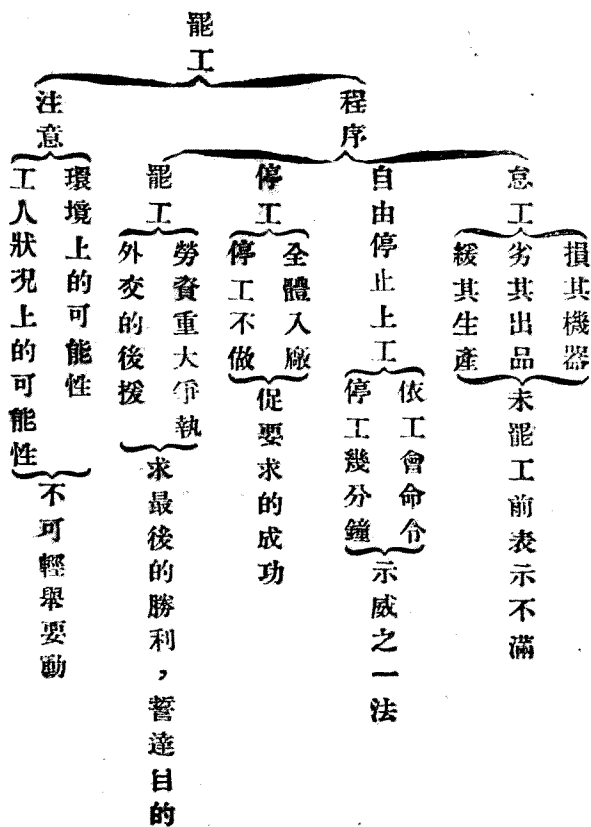 罷工
程序
怠工
損其機器
劣其出品
緩其生產
未罷工前表示不滿
自由停止上工
依工會命令
停工幾分鐘
示威之一法
停工
全體入廠
停工不做
促要求的成功
罷工
勞資重大爭執
外交的後援
求最後的勝利，誓達目的
注意
環境上的可能性
工人狀況上的可能性
不可輕舉要動